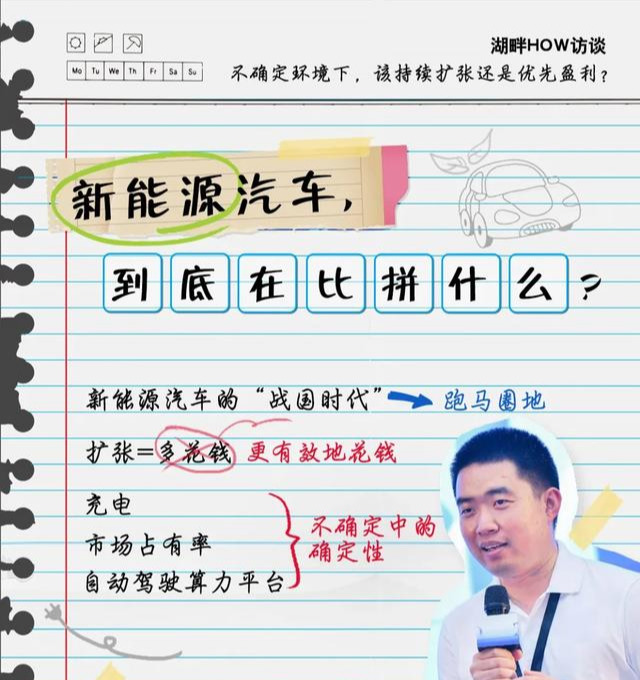 湖畔HOW访谈
Mo Tu We Th Fr Sa Su
不确定环境下，该持续扩张还是优先盈利？
新能源汽车，
到底在比拼什么？
新能源汽车的“战国时代” 跑马圈地
扩张=多花钱 更有效地花钱
充电
市场占有率
自动驾驶算力平台
不确定中的
确定性